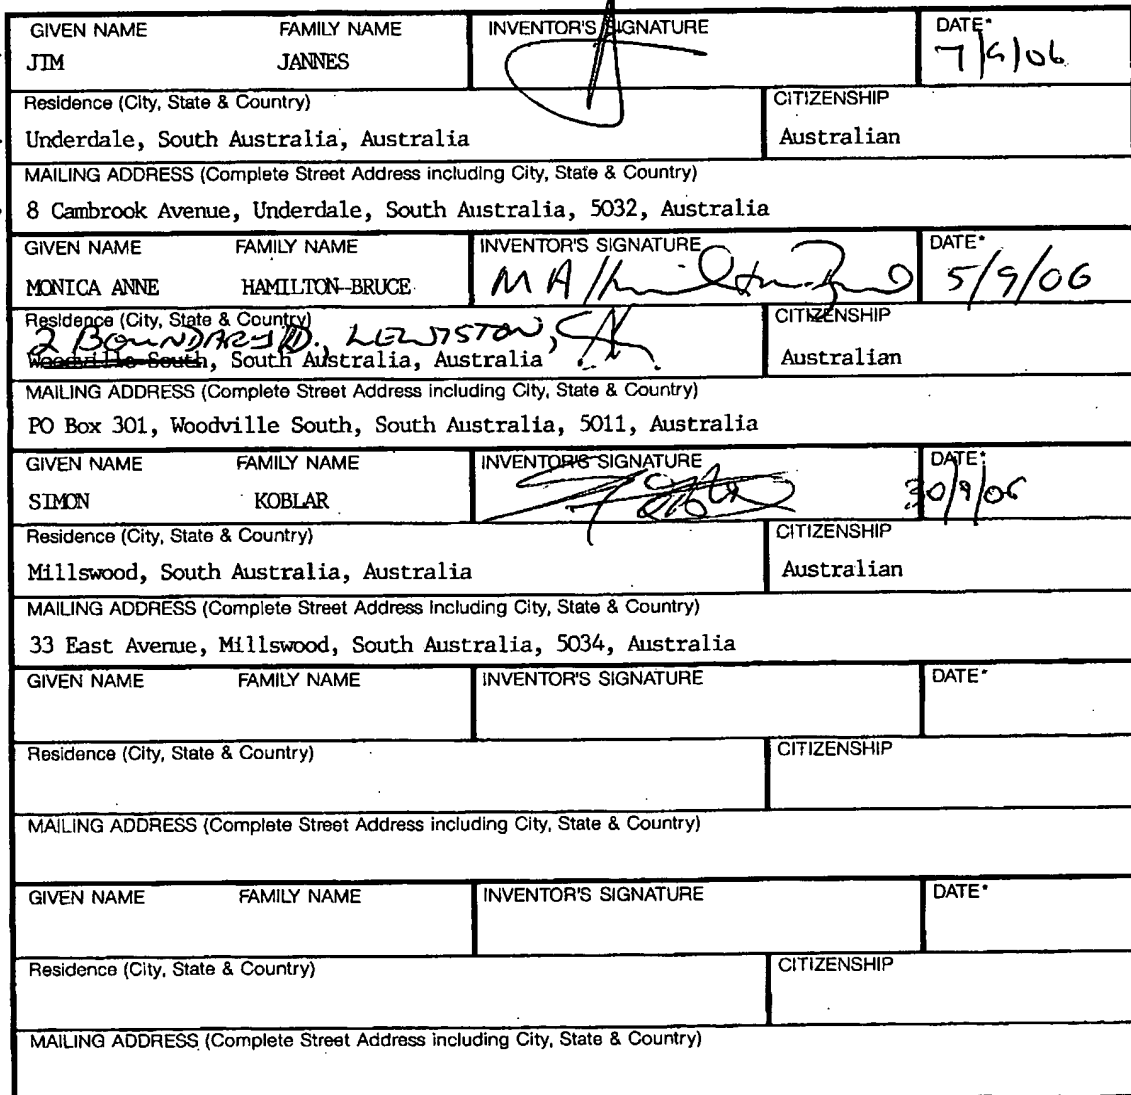 GIVEN NAME FAMILY NAME INVENTOR'S SIGNATURE DATE*
JIM JANNES 7/9/06
Residence (City, State & Country) CITIZENSHIP
Underdale, South Australia, Australia Australian
MAILING ADDRESS (Complete Street Address including City, State & Country)
8 Cambrook Avenue, Underdale, South Australia, 5032, Australia
GIVEN NAME FAMILY NAME INVENTOR'S SIGNATURE DATE*
MONICA ANNE HAMILTON-BRUCE M A Hamilton-Bruce 5/9/06
Residence (City, State & Country) CITIZENSHIP
2 BOUNDARY RD., LEWISTON,
Woodville South, South Australia, Australia Australian
MAILING ADDRESS (Complete Street Address including City, State & Country)
PO Box 301, Woodville South, South Australia, 5011, Australia
GIVEN NAME FAMILY NAME INVENTOR'S SIGNATURE DATE*
SIMON KOBLAR 30/9/06
Residence (City, State & Country) CITIZENSHIP
Millswood, South Australia, Australia Australian
MAILING ADDRESS (Complete Street Address including City, State & Country)
33 East Avenue, Millswood, South Australia, 5034, Australia
GIVEN NAME FAMILY NAME INVENTOR'S SIGNATURE DATE*
Residence (City, State & Country) CITIZENSHIP
MAILING ADDRESS (Complete Street Address including City, State & Country)
GIVEN NAME FAMILY NAME INVENTOR'S SIGNATURE DATE*
Residence (City, State & Country) CITIZENSHIP
MAILING ADDRESS (Complete Street Address including City, State & Country)